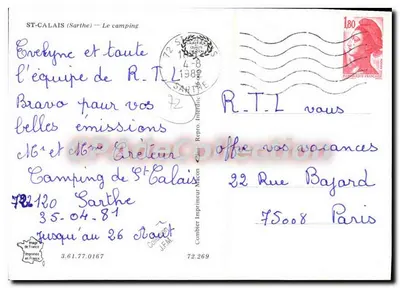 ST-CALAIS (Sarthe) — Le camping
Evelyne et toute
l'équipe de R.T.L
Bravo pour vos
belles émissions
Mr et Mme
Camping de St Calais
72120 Sarthe
35-04-81
Jusqu'au 26 Août
72
4-8
1982
SARTHE
1,80
R.T.L vous
offre vos vacances
22 Rue Bayard
75008 Paris
Combier Imprimeur Mâcon
Image de France
Imprimée en France
COMBIER
3.61.77.0167
72.269